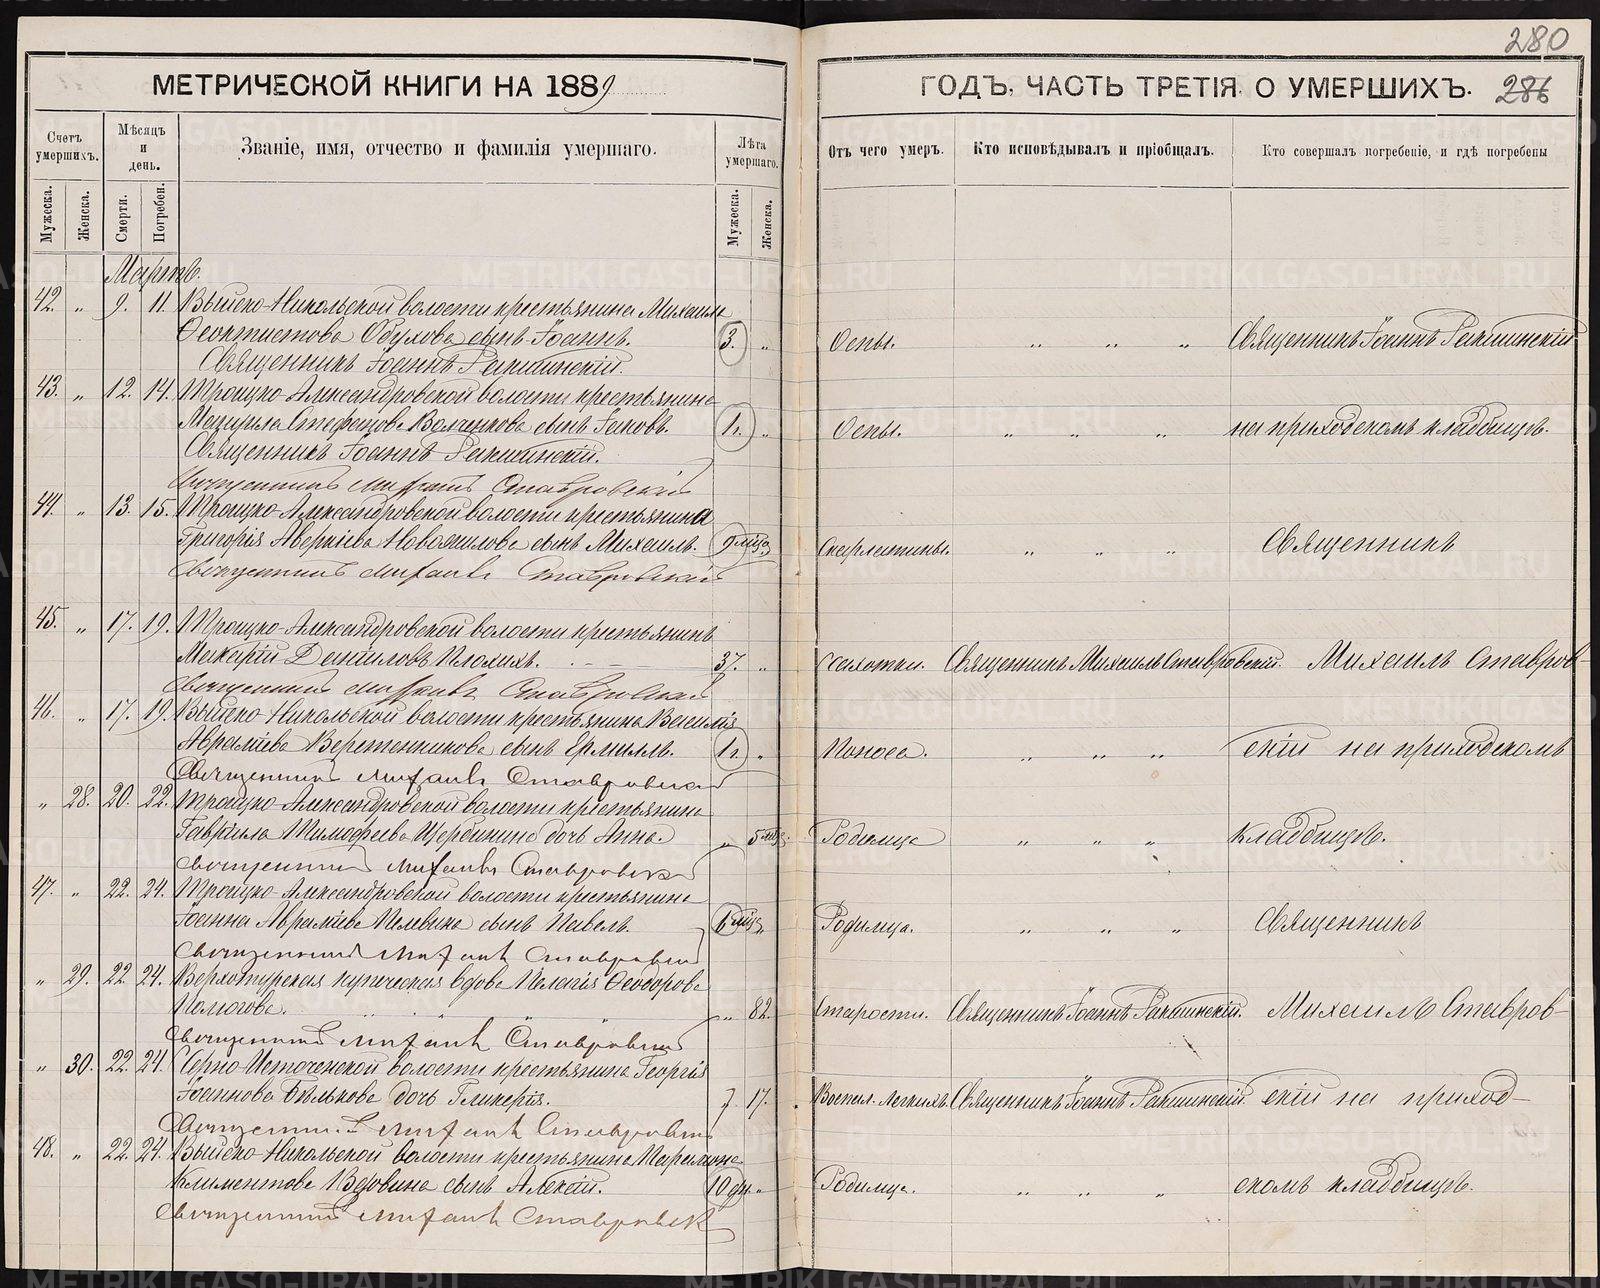 280
МЕТРИЧЕСКОЙ КНИГИ НА 1889
ГОДЪ, ЧАСТЬ ТРЕТІЯ О УМЕРШИХЪ. 286
Счетъ умершихъ.
Мѣсяцъ и день.
Званіе, имя, отчество и фамилія умершаго.
Лѣта умершаго.
Отъ чего умеръ.
Кто исповѣдывалъ и пріобщалъ.
Кто совершалъ погребеніе, и гдѣ погребены
Мужеска. Женска. Смерти. Погребен. Мужеска. Женска.
Мартъ.
42. „ 9. 11. Выйско-Никольской волости крестьянина Михаила
Феоктистова Обухова сынъ Іоаннъ. 3. „ Оспы. „ „ „ Священникъ Іоаннъ
Священникъ Іоаннъ
43. „ 12. 14. Троицко-Александровской волости крестьянина
Стефанова сынъ Іаковъ. 1 г. „ Оспы. „ „ „ на приходскомъ кладбищѣ.
Священникъ Іоаннъ
Священникъ Михаилъ Ставровскій
44. „ 13. 15. Троицко-Александровской волости крестьянина
Григорія Аверкіева сынъ Михаилъ. 9 мца. Скарлатины. „ „ „ Священникъ
Священникъ Михаилъ Ставровскій
45. „ 17. 19. Троицко-Александровской волости крестьянинъ
Макарій Даниловъ Плохихъ. 37. „ Чахотки. Священникъ Михаилъ Ставровскій. Михаилъ Ставров-
Священникъ Михаилъ Ставровскій
46. „ 17. 19. Выйско-Никольской волости крестьянина Василія
Авраміева Веретенникова сынъ Ермилъ. 1 г. „ Поноса. „ „ „ скій на приходскомъ
Священникъ Михаилъ Ставровскій
„ 28. 20. 22. Троицко-Александровской волости крестьянина
Гавріила Тимофеева Щербинина дочь Анна. „ 5 мца. Родимца „ „ „ кладбищѣ.
Священникъ Михаилъ Ставровскій
47. „ 22. 24. Троицко-Александровской волости крестьянина
Іоанна Авраміева Пелевина сынъ Павелъ. 6 мца „ Родимца. „ „ „ Священникъ
Священникъ Михаилъ Ставровскій
„ 29. 22. 24. Верхотурская купеческая вдова Пелагія Феодорова
„ 82. Старости. Священникъ Іоаннъ Михаилъ Ставров-
Священникъ Михаилъ Ставровскій
„ 30. 22. 24. волости крестьянина Георгія
Іоаннова Бѣлькова дочь Гликерія. 17. Воспал. легкихъ. Священникъ Іоаннъ скій на приход-
Священникъ Михаилъ Ставровскій
48. „ 22. 24. Выйско-Никольской волости крестьянина Парамона
Климентова Вдовина сынъ Алексій. 10 дн. „ Родимца. „ „ „ скомъ кладбищѣ.
Священникъ Михаилъ Ставровскій
METRIKI.GASO-URAL.RU